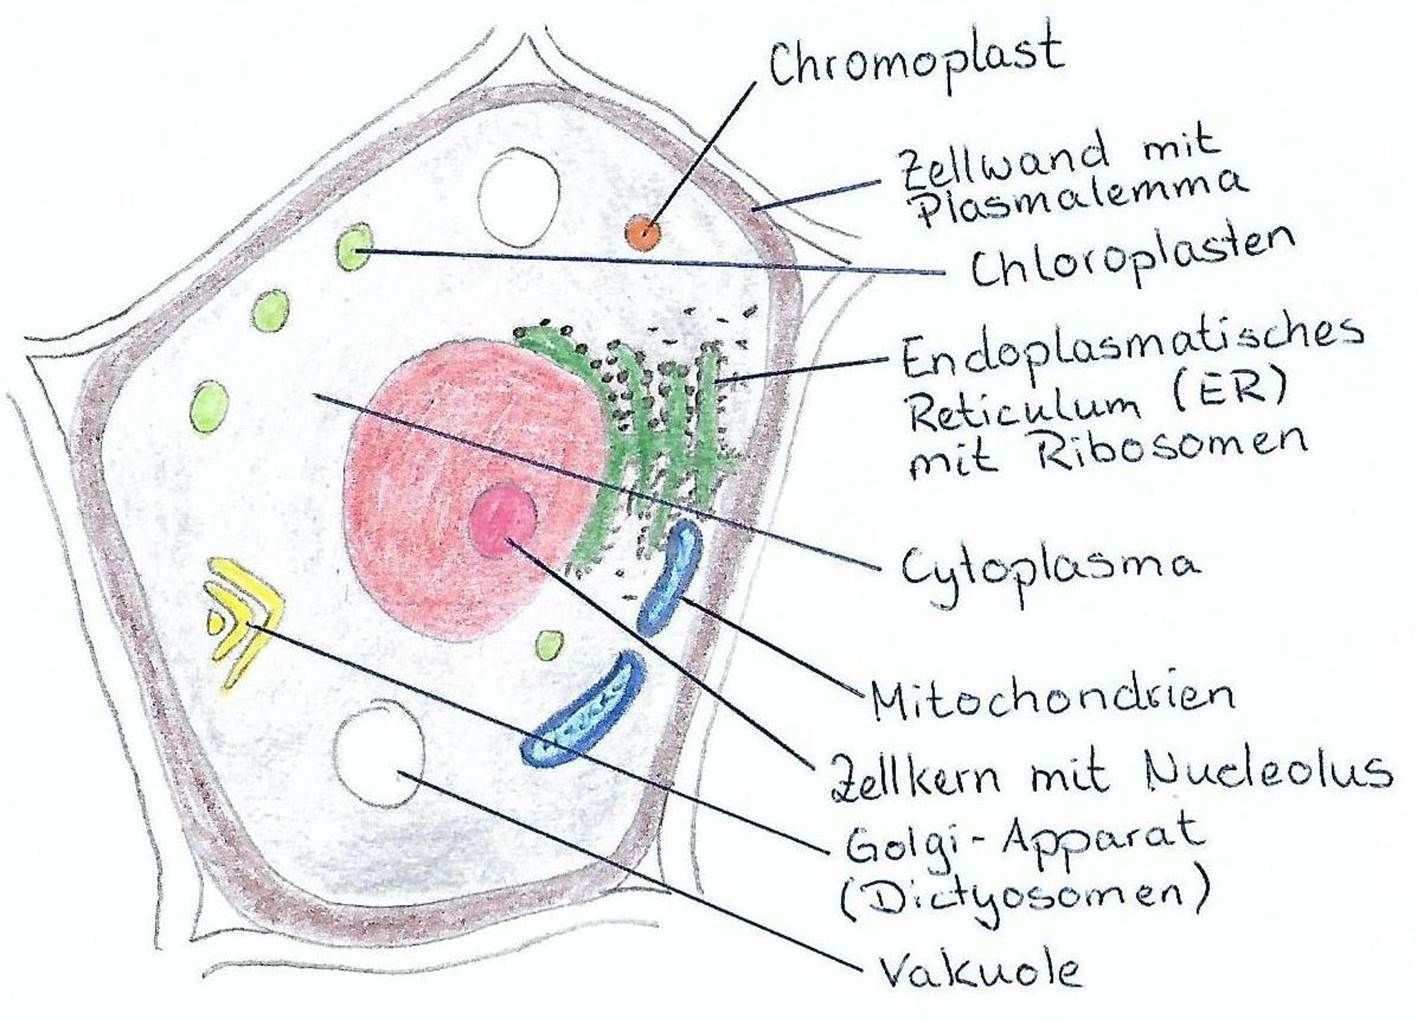 Chromoplast
Zellwand mit
Plasmalemma
Chloroplasten
Endoplasmatisches
Reticulum (ER)
mit Ribosomen
Cytoplasma
Mitochondrien
Zellkern mit Nucleolus
Golgi-Apparat
(Dictyosomen)
Vakuole